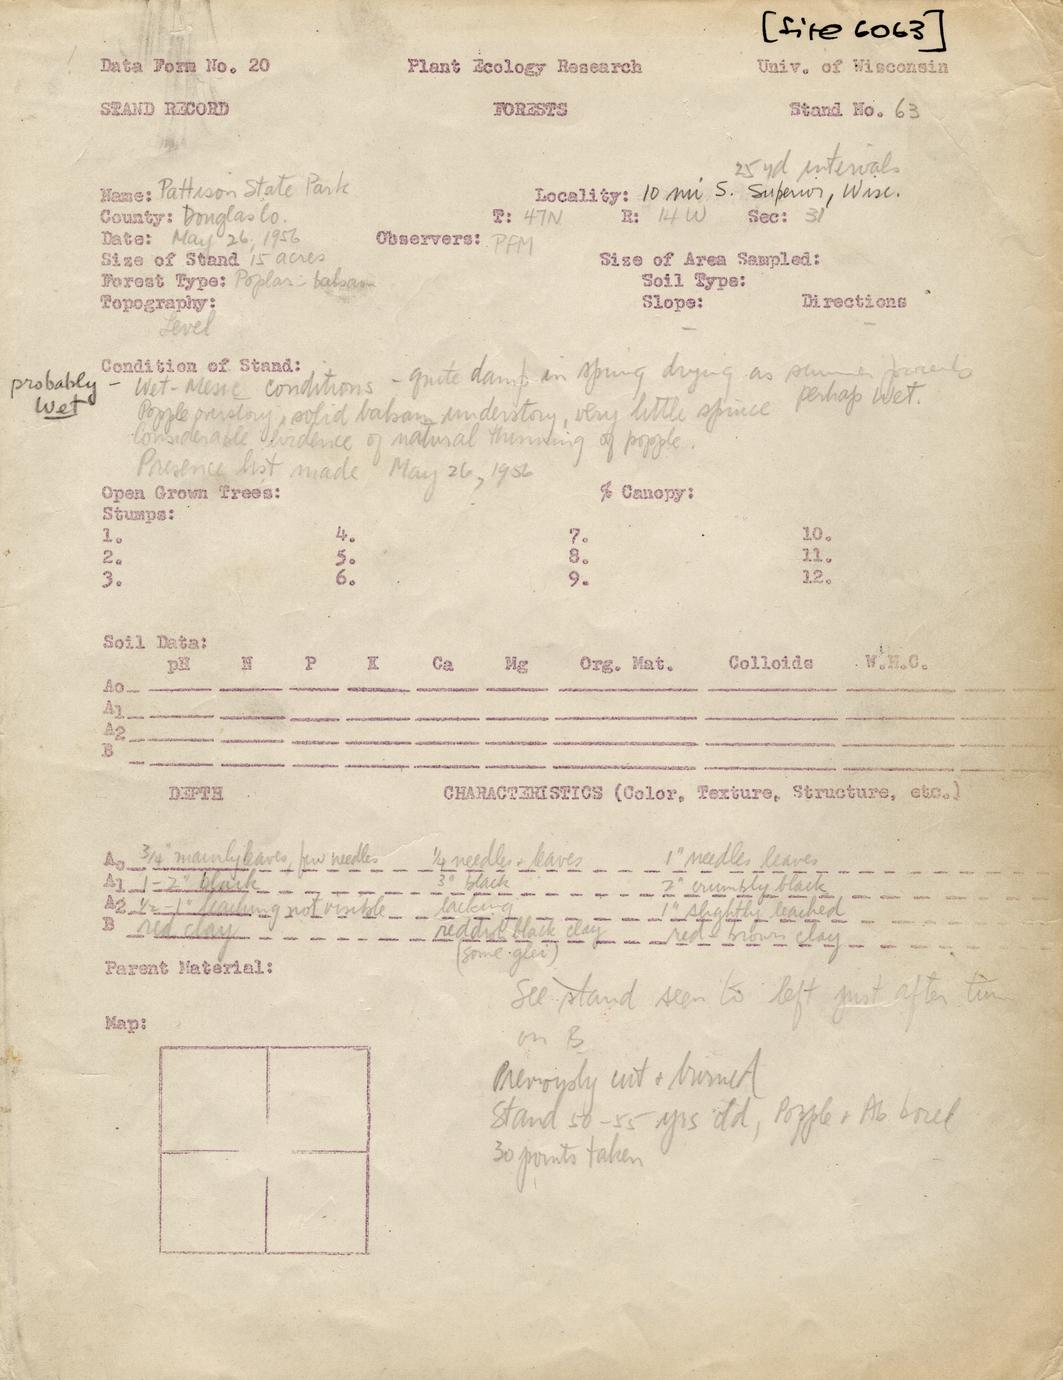 [Site 6063]
Data Form No. 20 Plant Ecology Research Univ. of Wisconsin
STAND RECORD FORESTS Stand No. 63
25 yd intervals
Name: Pattison State Park Locality: 10 mi S. Superior, Wisc.
County: Douglas Co. T: 47N R: 14W Sec: 31
Date: May 26, 1956 Observers: PFM
Size of Stand 15 acres Size of Area Sampled:
Forest Type: Poplar - balsam Soil Type:
Topography: Slope: Directions
Level – –
Condition of Stand:
probably – Wet-Mesic conditions - quite damp in spring drying as summer proceeds
Wet perhaps wet.
Popple overstory, solid balsam understory, very little spruce
Considerable evidence of natural thinning of popple.
Presence list made May 26, 1956
Open Grown Trees: % Canopy:
Stumps:
1. 4. 7. 10.
2. 5. 8. 11.
3. 6. 9. 12.
Soil Data:
pH N P K Ca Mg Org. Mat. Colloids W.H.C.
Ao
A1
A2
B
DEPTH CHARACTERISTICS (Color, Texture, Structure, etc.)
Ao 3/4" mainly leaves, few needles 1/4 needles + leaves 1" needles leaves
A1 1-2" black 3" black 2" crumbly black
A2 1/2-1" leaching not visible lacking 1" slightly leached
B red clay reddish black clay red-brown clay
(some glei)
Parent Material:
See stand seen to left just after turn
on B
Map:
Previously cut + burned
Stand 50-55 yrs old, Popple + Ab bored
30 points taken